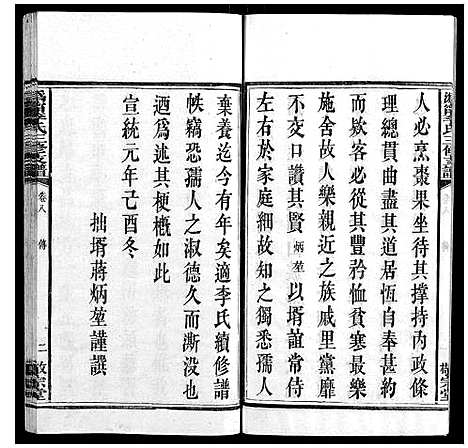 人必烹棗果坐待其撑持內政條
理總貫曲盡其道居恆自奉甚約
而欵客必從其豐矜恤貧寒最樂
施舍故人樂親近之族戚里黨靡
不交口讚其賢炳堃以壻誼常侍
左右於家庭細故知之獨悉孺人
棄養迄今有年矣適李氏續修譜
帙竊恐孺人之淑德久而澌没也
迺爲述其梗概如此
宣統元年己酉冬
拙壻蔣炳堃謹譔
李氏三修支譜
卷八
傳
二
敬宗堂